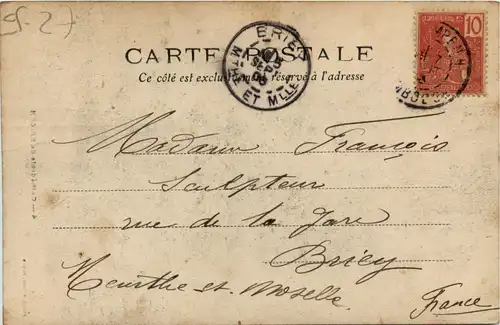 95-27
BRIEY
MTHE ET MLLE
10
CARTE POSTALE
Ce côté est exclusivement réservé à l'adresse
Madame François
Sculpteur
rue de la Gare
Briey
Meurthe-et-Moselle
France